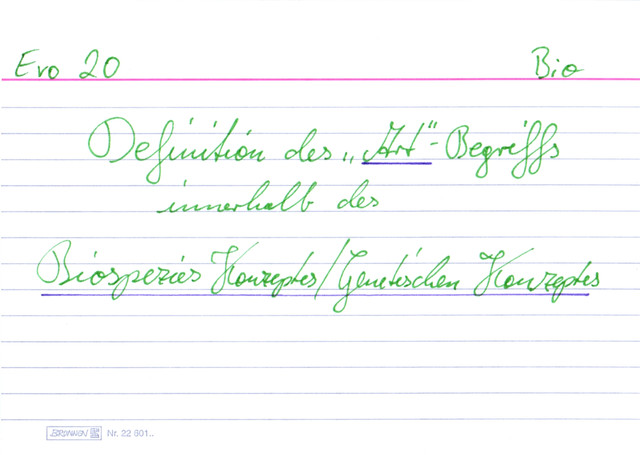 Evo 20 Bio
Definition des „Art“-Begriffs
innerhalb des
Biospezies Konzeptes/Genetischen Konzeptes
BRUNNEN Nr. 22 601..